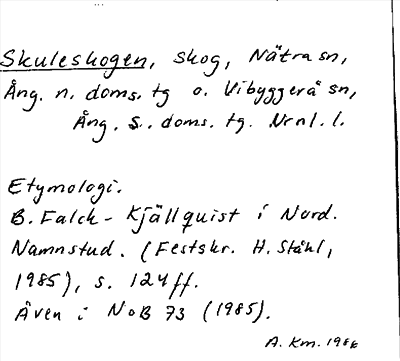 Skuleskogen, skog, Nätra sn,
Ång. n. doms. tg o. Vibyggerå sn,
Ång. S. doms. tg. Vrnl. l.
Etymologi.
B. Falck-Kjällquist i Nord.
Namnstud. (Festskr. H. Ståhl,
1985), s. 124 ff.
Även i NoB 73 (1985).
A. Km. 1986